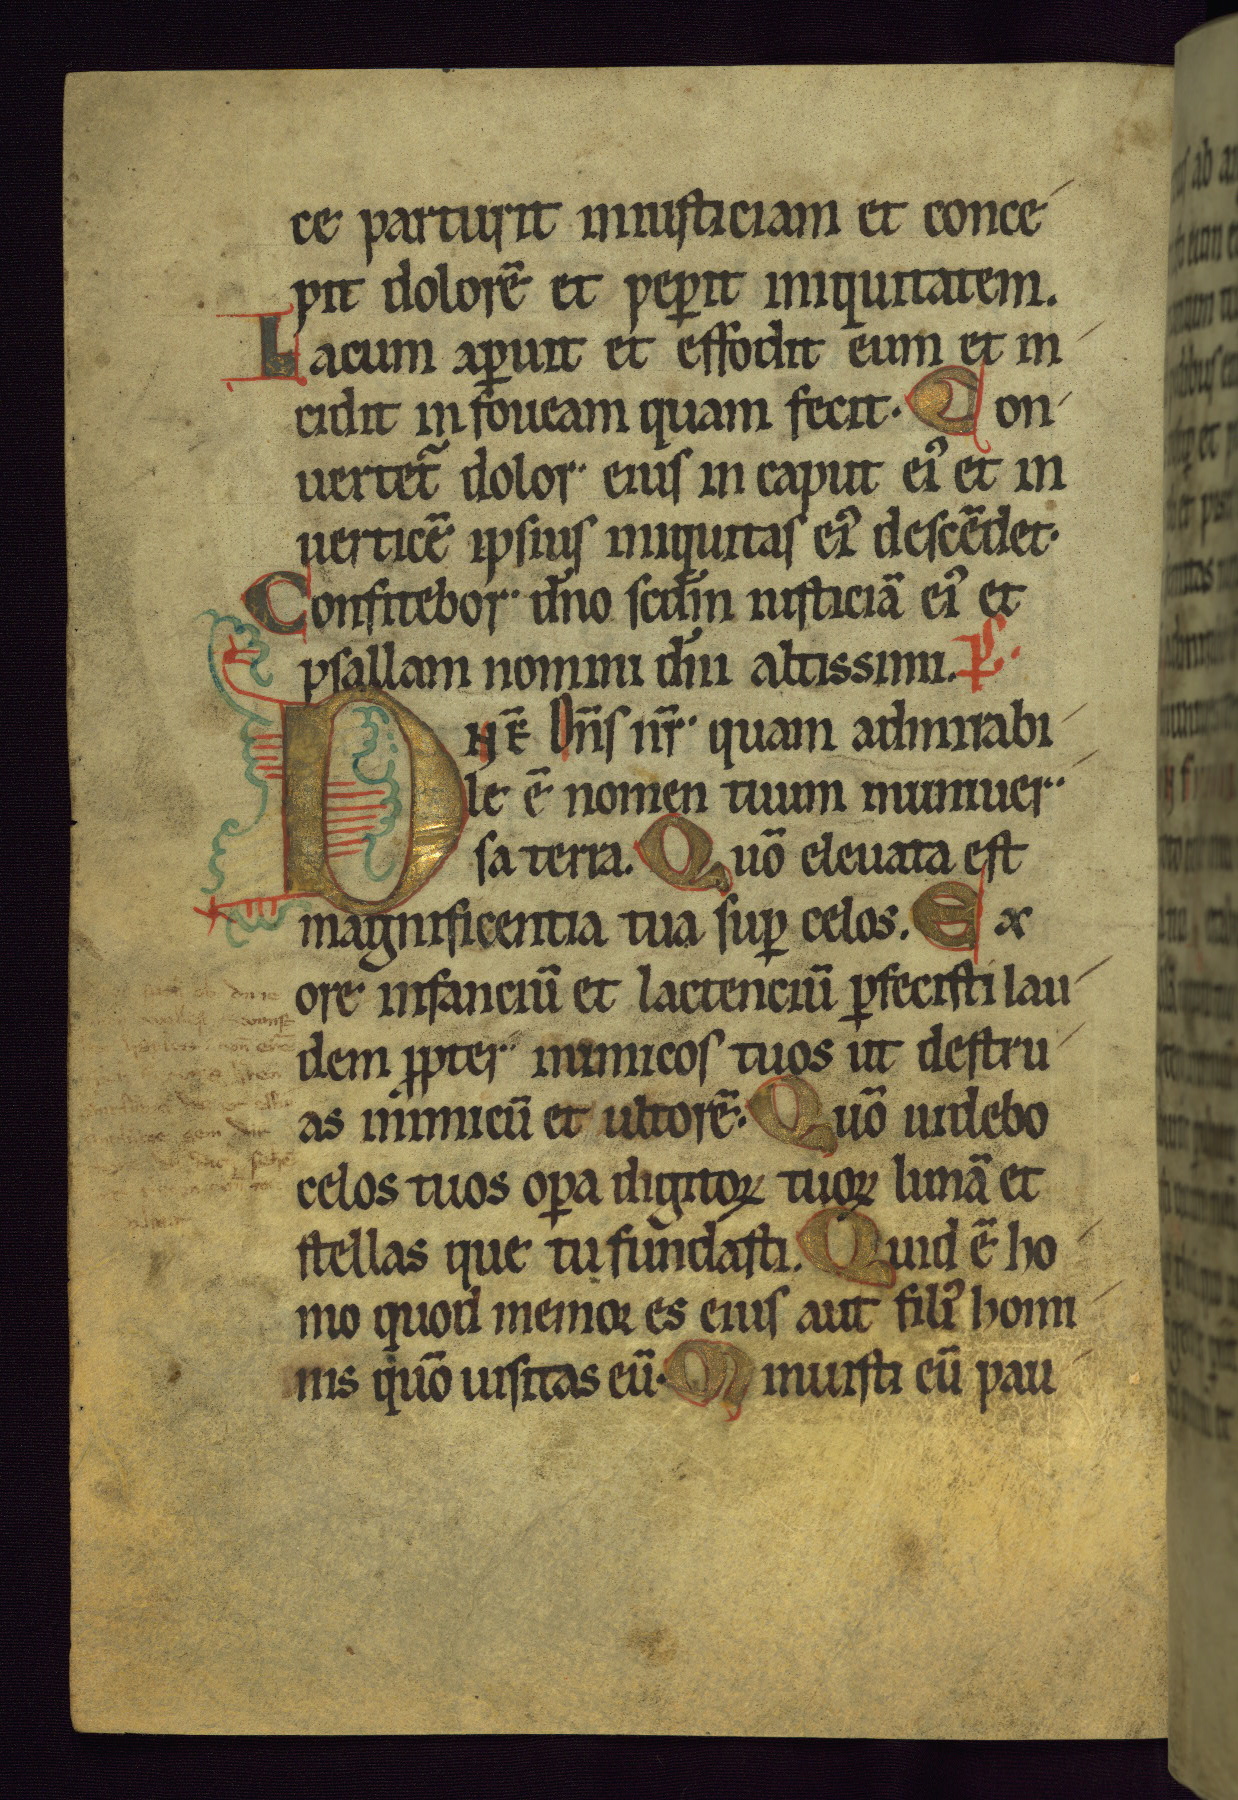 ce parturit iniusticiam et conce
pit dolorē et pep̄it iniquitatem.
Lacum ap̄uit et effodit eum et in
cidit in foueam quam fecit. Con
uertet᷑ dolor eius in caput ei᾿ et in
uerticē ipsius iniquitas ei᾿ descēdet.
Confitebor dn̄o scdm̄ iusticiā ei᾿ et
psallam nomini dn̄i altissimi. P̄s.
DNE̅ Dn̄s nr̄ quam admirabi
le ē nomen tuum inuniuer
sa terra. Quō eleuata est
magnificentia tua sup̄ celos. Ex
ore infanciū et lactenciū p̄fecisti lau
dem ꝓpter inimicos tuos ut destru
as inimicū et ultorē. Quō uidebo
celos tuos op̄a digitoꝝ tuoꝝ lunā et
stellas que tu fundasti. Quid ē ho
mo quod memor es eius aut fili᾿ homi
nis quō uisitas eū. Minuisti eū pau